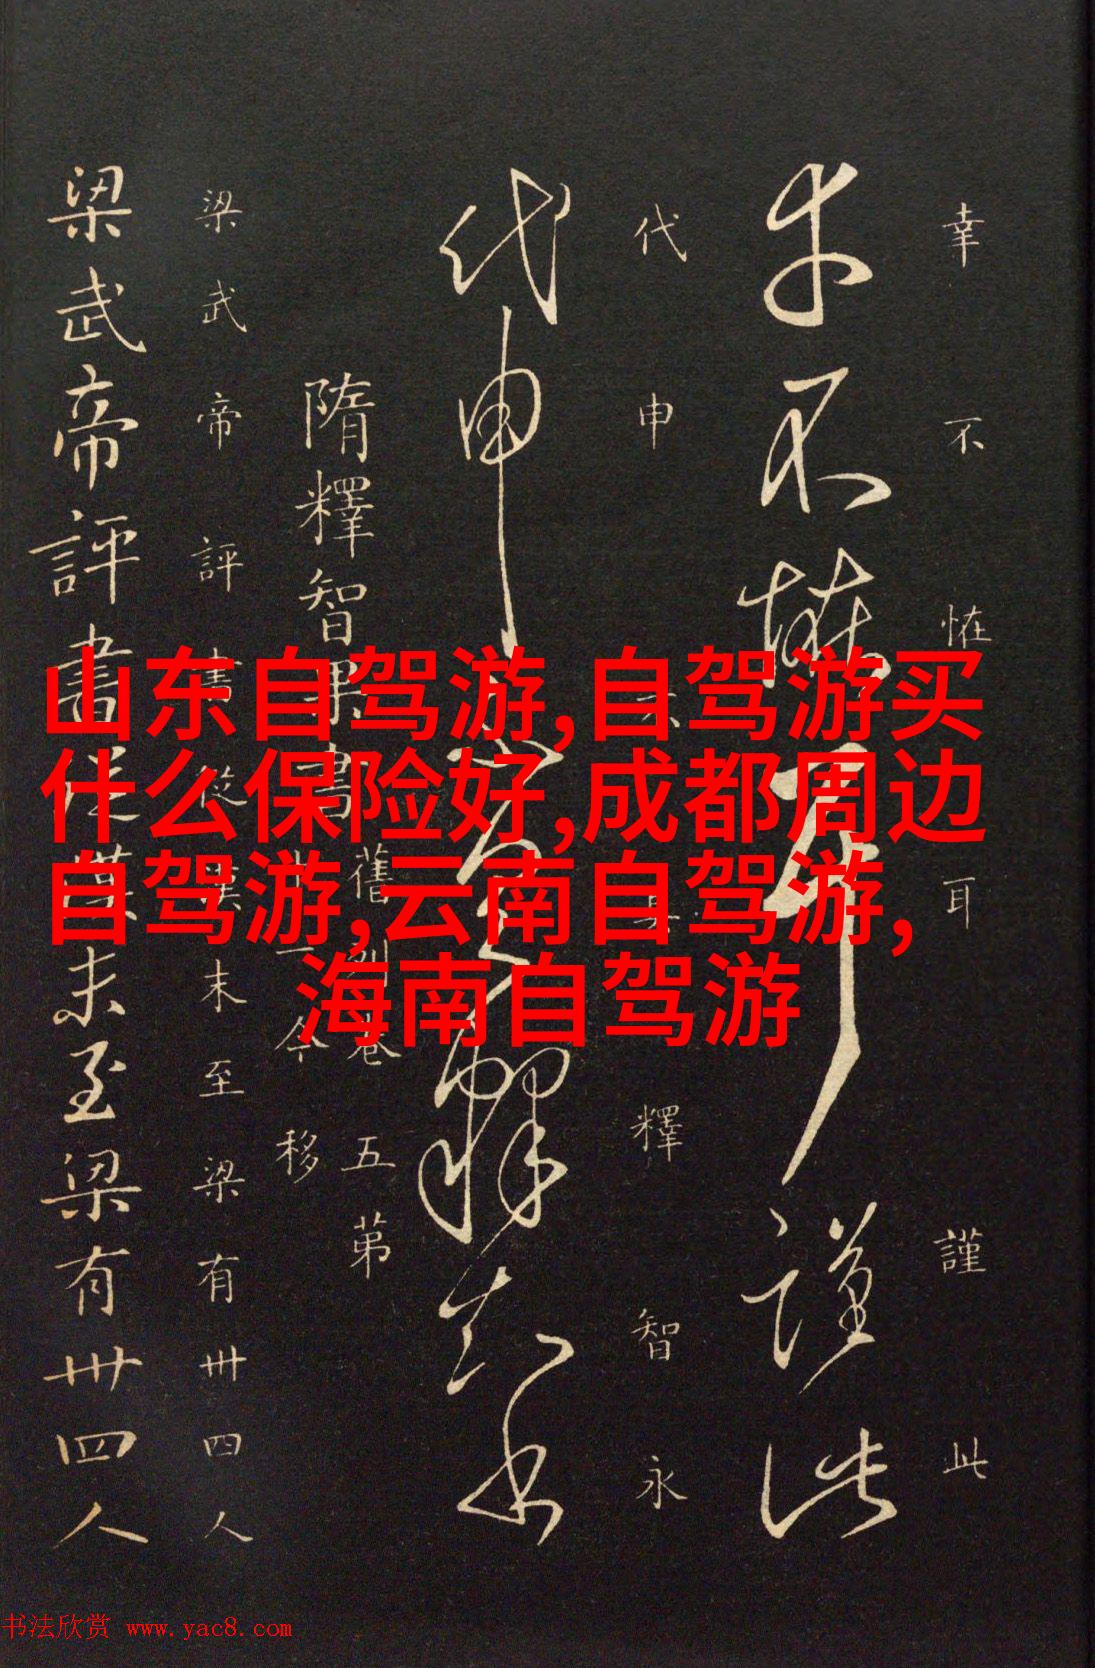 幸不恠耳謹此
幸不恠耳謹此
代申不具釋智永
代申不具釋智永
隋釋智果書
舊列卷五第
十一今移
梁武帝評書從漢末至梁有卅四人
梁武帝評書從漢末至梁有卅四人
山东自驾游,自驾游买
什么保险好,成都周边
自驾游,云南自驾游,
海南自驾游
书法欣赏 www.yac8.com